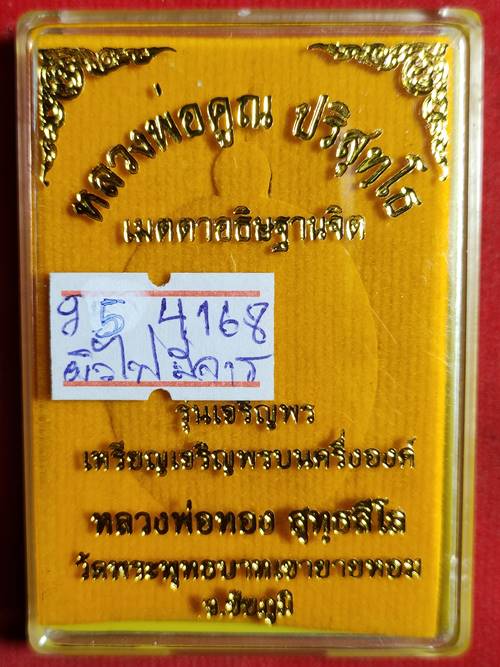 หลวงพ่อคูณ ปริสุทฺโธ
เมตตาอธิษฐานจิต
95 4168
รุ่นเจริญพร
เหรียญเจริญพรบนครึ่งองค์
หลวงพ่อทอง สุทฺธสีโล
วัดพระพุทธบาทเขายายหอม
จ.ชัยภูมิ